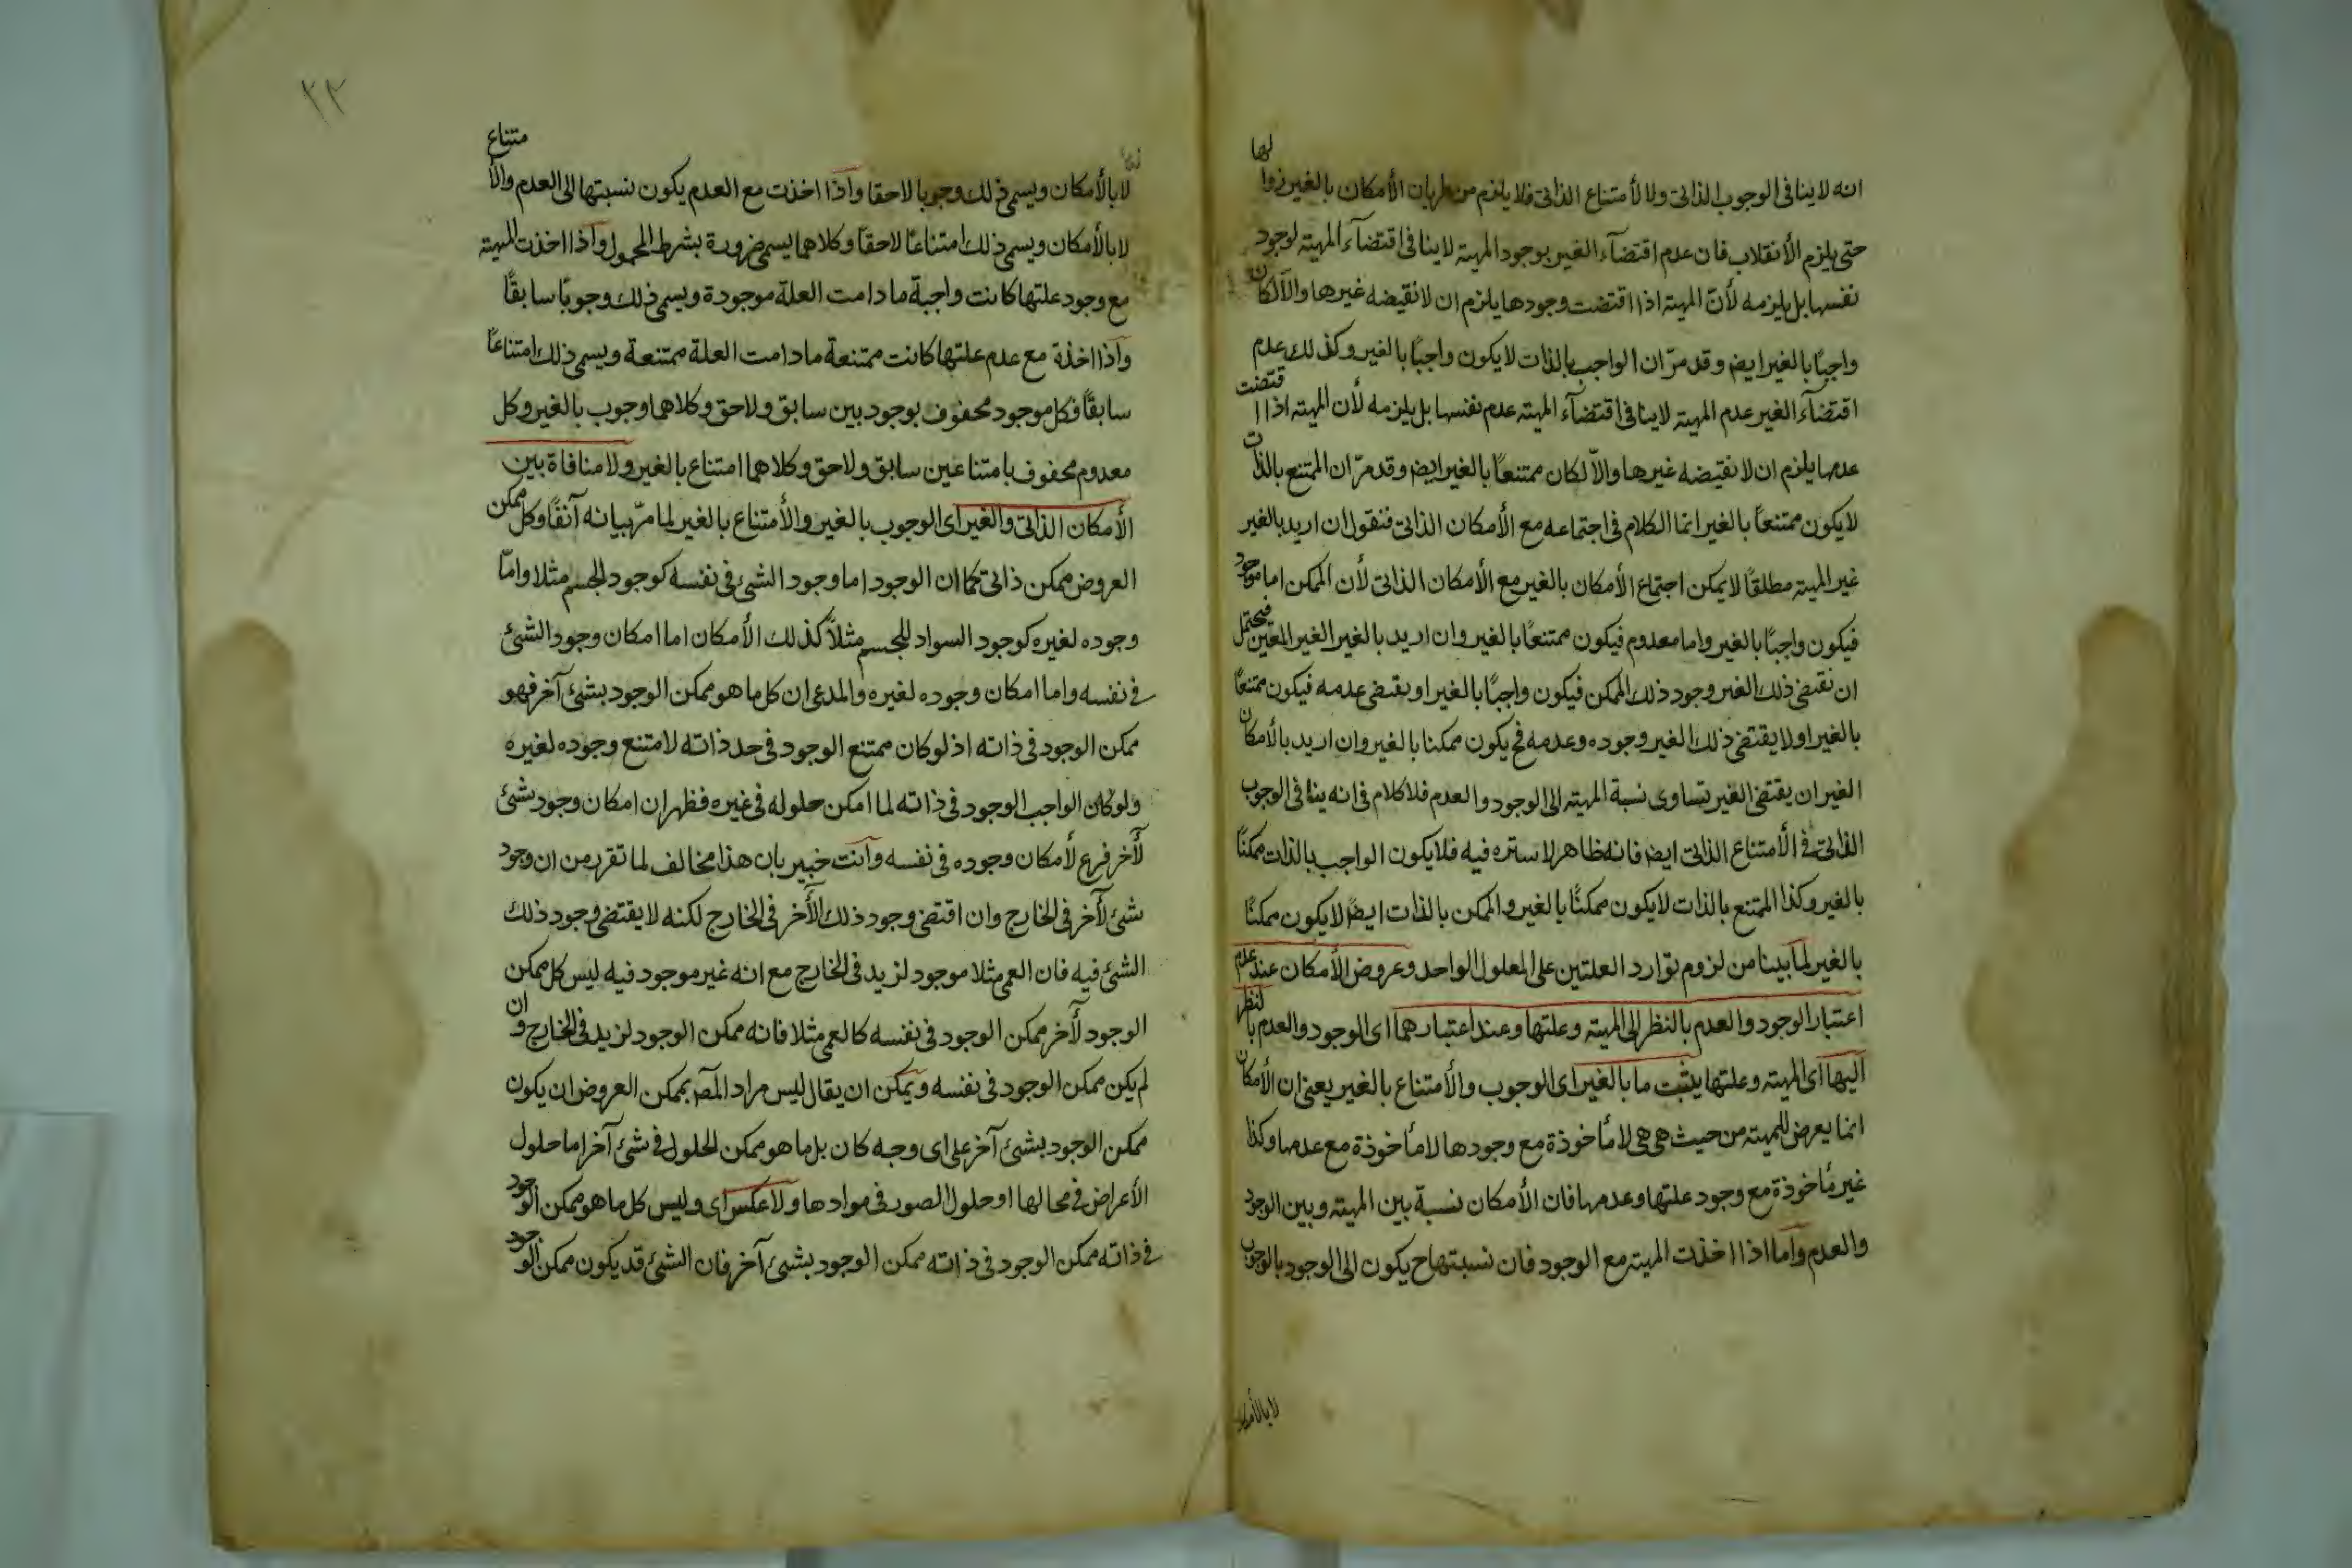 انه لاينافى الوجوب الذاتى ولا الأمتناع الذاتى فلا يلزم من طريان الأمكان بالغير زوالها
حتى يلزم الأنقلاب فان عدم اقتضآء الغير بوجود المهية لاينافى اقتضآء المهية لوجود
نفسها بل يلزمه لأنّ المهية اذا اقتضت وجودها يلزم ان لا نقيضه غيرها والا لكان
واجبًا بالغير ايض وقد مرّ ان الواجب بالذات لا يكون واجبًا بالغير وكذلك عدم
اقتضآء الغير عدم المهية لاينافى اقتضآء المهية عدم نفسها بل يلزمه لأن المهية اذا اقتضت
عدمها يلزم ان لا نقيضه غيرها والاّ لكان ممتنعًا بالغير ايض وقد مرّ ان الممتنع بالذات
لا يكون ممتنعًا بالغير انما الكلام فى اجتماعه مع الأمكان الذاتى فنقول ان اريد بالغير
غير المهية مطلقًا لا يمكن اجتماع الأمكان بالغير مع الأمكان الذاتى لأن الممكن اما موجود
فيكون واجبًا بالغير واما معدوم فيكون ممتنعًا بالغير وان اريد بالغير الغير المعين فيحتمل
ان نقتضى ذلك الغير وجود ذلك الممكن فيكون واجبًا بالغير او يقتضى عدمه فيكون ممتنعًا
بالغير او لا يقتضى ذلك الغير وجوده وعدمه فح يكون ممكنا بالغير وان اريد بالأمكان
الغير ان يقتضى الغير تساوى نسبة المهية الى الوجود والعدم فلا كلام فى انه ينافى الوجوب
الذاتى فى الأمتناع الذاتى ايض فانه ظاهر لا ستره فيه فلا يكون الواجب بالذات ممكنًا
بالغير وكذا الممتنع بالذات لا يكون ممكنًا بالغير والممكن بالذات ايضًا لا يكون ممكنًا
بالغير لما بينا من لزوم توارد العلتين على المعلول الواحد وعروض الأمكان عند عدم
اعتبار الوجود والعدم بالنظر الى المهية وعلتها وعند اعتبارهما اى الوجود والعدم بالنظر
اليها اى المهية وعلتها يثبت ما بالغير اى الوجوب والأمتناع بالغير يعنى ان الأمكان
انما يعرض للمهية من حيث هى هى لا مأخوذة مع وجودها لا مأخوذة مع عدمها وكذا
غير مأخوذة مع وجود علتها وعدمها فان الأمكان نسبة بين المهية وبين الوجود
والعدم واما اذا اخذت المهية مع الوجود فان نسبتها ح يكون الى الوجود بالوجوب
لا بالأمكان
٢٣
لا بالأمكان ويسمى ذلك وجوبا لاحقا واذا اخذت مع العدم يكون نسبتها الى العدم والأمتناع
لا بالأمكان ويسمى ذلك امتناعًا لاحقًا وكلاهما يسمى ضرورة بشرط المحمول واذا اخذت المهية
مع وجود علتها كانت واجبة ما دامت العلة موجودة ويسمى ذلك وجوبًا سابقًا
واذا اخذة مع عدم علتها كانت ممتنعة ما دامت العلة ممتنعة ويسمى ذلك امتناعًا
سابقًا فكل موجود محفوف بوجود بين سابق ولاحق وكلاهما وجوب بالغير وكل
معدوم محفوف بامتناعين سابق ولاحق وكلاهما امتناع بالغير ولا منافاة بين
الأمكان الذاتى والغير اى الوجوب بالغير والأمتناع بالغير لما مرّ بيانه آنفًا وكل ممكن
العروض ممكن ذاتى كما ان الوجود اما وجود الشئ فى نفسه كوجود الجسم مثلا واما
وجوده لغيره كوجود السواد للجسم مثلاً كذلك الأمكان اما امكان وجود الشئ
فى نفسه واما امكان وجوده لغيره والمدعى ان كل ما هو ممكن الوجود بشئ آخر فهو
ممكن الوجود فى ذاته اذ لو كان ممتنع الوجود فى حد ذاته لامتنع وجوده لغيره
ولو كان الواجب الوجود فى ذاته لما امكن حلوله فى غيره فظهر ان امكان وجود بشئ
لآخر فرع لأمكان وجوده فى نفسه وانت خبير بان هذا مخالف لما تقرر من ان وجود
شئ لآخر فى الخارج وان اقتضى وجود ذلك الأخر فى الخارج لكنه لا يقتضى وجود ذلك
الشئ فيه فان العمى مثلا موجود لزيد فى الخارج مع انه غير موجود فيه ليس كل ممكن
الوجود لآخر ممكن الوجود فى نفسه كالعمى مثلا فانه ممكن الوجود لزيد فى الخارج وان
لم يكن ممكن الوجود فى نفسه ويمكن ان يقال ليس مراد المص بممكن العروض ان يكون
ممكن الوجود بشئ آخر على اى وجه كان بل ما هو ممكن الحلول فى شئ آخر اما حلول
الأعراض فى محالها او حلول الصور فى موادها ولا عكس اى وليس كل ما هو ممكن الوجود
فى ذاته ممكن الوجود فى ذاته ممكن الوجود بشئ آخر فان الشئ قد يكون ممكن الوجود